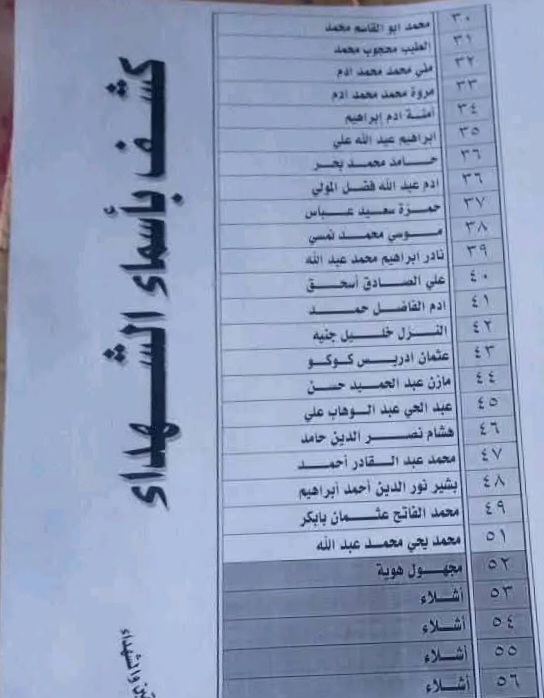 كشف بأسماء الشهداء
٣٠ محمد ابو القاسم محمد
٣١ الطيب محجوب محمد
٣٢ علي محمد محمد ادم
٣٣ مروة محمد محمد ادم
٣٤ أمنة ادم إبراهيم
٣٥ ابراهيم عبد الله علي
٣٦ حامد محمد بحر
٣٦ ادم عبد الله فضل المولي
٣٧ حمزة سعيد عباس
٣٨ موسي محمد نمسي
٣٩ نادر ابراهيم محمد عبد الله
٤٠ علي الصادق أسحق
٤١ ادم الفاضل حمد
٤٢ النزل خليل جنيه
٤٣ عثمان ادريس كوكو
٤٤ مازن عبد الحميد حسن
٤٥ عبد الحي عبد الوهاب علي
٤٦ هشام نصر الدين حامد
٤٧ محمد عبد القادر أحمد
٤٨ بشير نور الدين أحمد أبراهيم
٤٩ محمد الفاتح عثمان بابكر
٥١ محمد يحي محمد عبد الله
٥٢ مجهول هوية
٥٣ أشلاء
٥٤ أشلاء
٥٥ أشلاء
٥٦ أشلاء
والشهداء